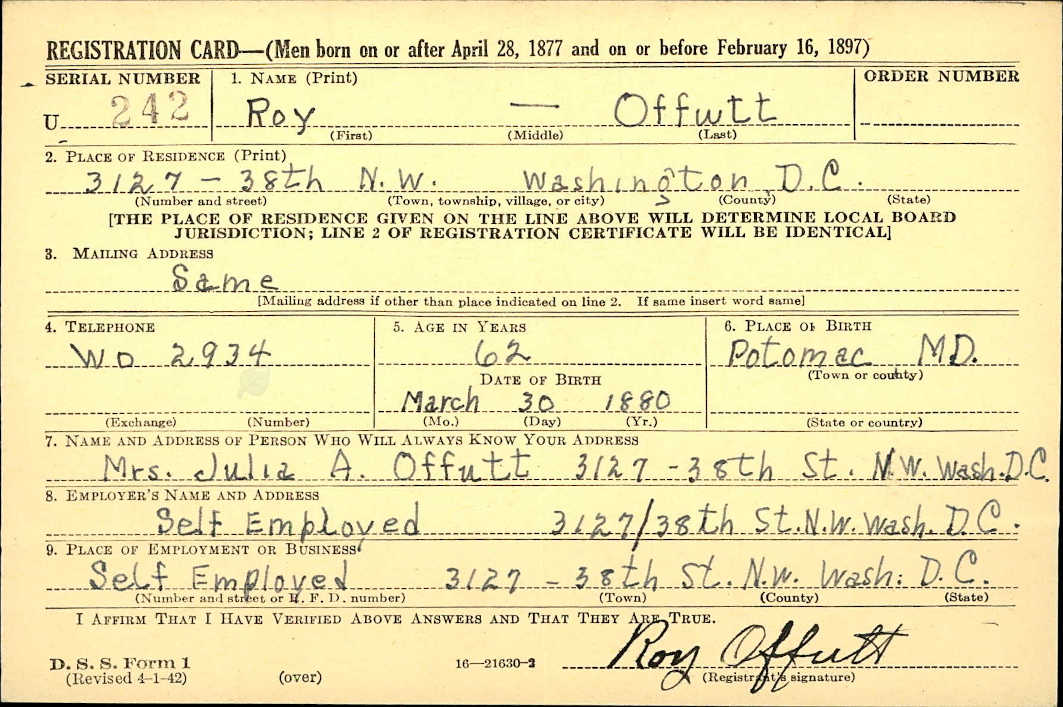 REGISTRATION CARD—(Men born on or after April 28, 1877 and on or before February 16, 1897)
SERIAL NUMBER 1. NAME (Print) ORDER NUMBER
U 242 Roy — Offutt
(First) (Middle) (Last)
2. PLACE OF RESIDENCE (Print)
3127 – 38th N.W. Washington, D.C.
(Number and street) (Town, township, village, or city) (County) (State)
[THE PLACE OF RESIDENCE GIVEN ON THE LINE ABOVE WILL DETERMINE LOCAL BOARD
JURISDICTION; LINE 2 OF REGISTRATION CERTIFICATE WILL BE IDENTICAL]
3. MAILING ADDRESS
Same
[Mailing address if other than place indicated on line 2. If same insert word same]
4. TELEPHONE 5. AGE IN YEARS 6. PLACE OF BIRTH
WO 2934 62 Potomac MD.
(Town or county)
DATE OF BIRTH
March 30 1880
(Exchange) (Number) (Mo.) (Day) (Yr.) (State or country)
7. NAME AND ADDRESS OF PERSON WHO WILL ALWAYS KNOW YOUR ADDRESS
Mrs. Julia A. Offutt 3127 – 38th St. N.W. Wash. D.C.
8. EMPLOYER'S NAME AND ADDRESS
Self Employed 3127/38th St. N.W. Wash. D.C.
9. PLACE OF EMPLOYMENT OR BUSINESS
Self Employed 3127 – 38th St. N.W. Wash. D.C.
(Number and street or R. F. D. number) (Town) (County) (State)
I AFFIRM THAT I HAVE VERIFIED ABOVE ANSWERS AND THAT THEY ARE TRUE.
Roy Offutt
D. S. S. Form 1
(Revised 4-1-42) (over) 16—21630-2 (Registrant's signature)